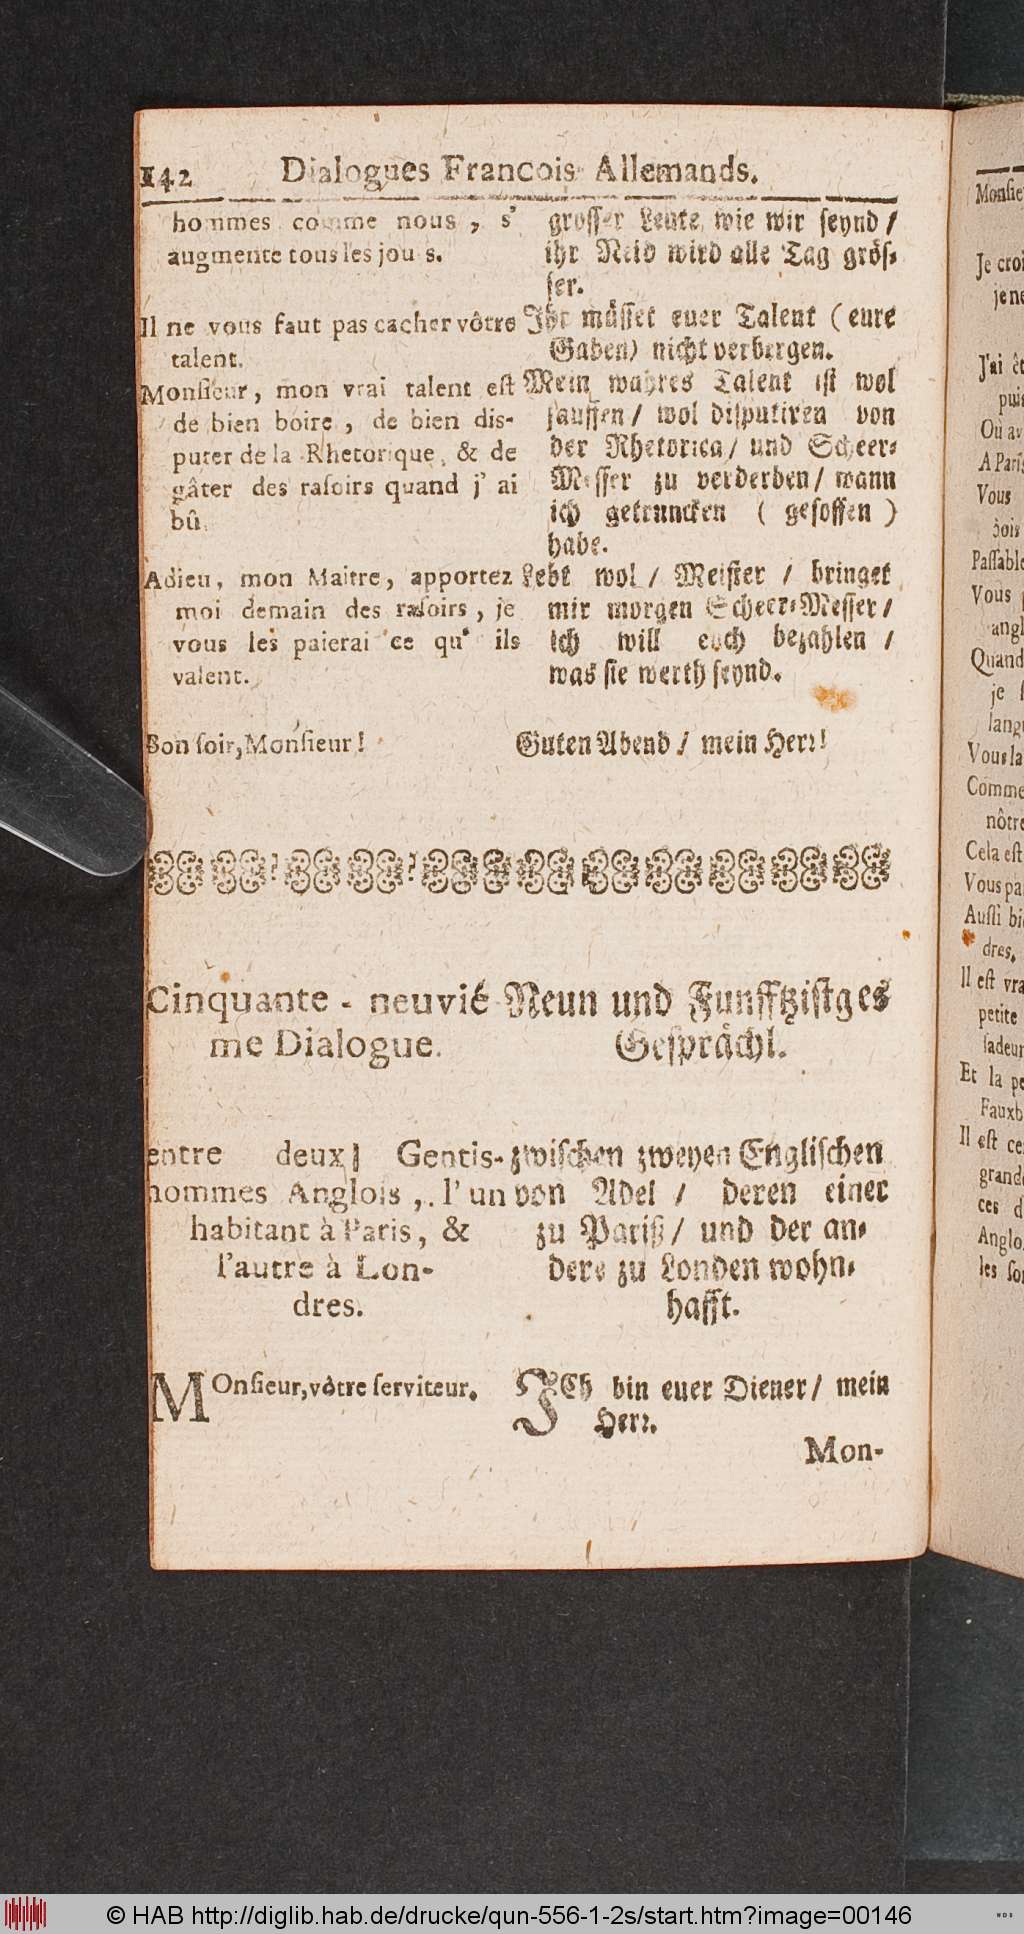 142 Dialogues Francois Allemands.
hommes comme nous, s'
augmente tous les jours.
Il ne vous faut pas cacher vôtre
talent.
Monſieur, mon vrai talent eſt
de bien boire, de bien dis-
puter de la Rhetorique, & de
gâter des raſoirs quand j'ai
bû.
Adieu, mon Maitre, apportez
moi demain des raſoirs, je
vous les paierai ce qu' ils
valent.
Bon ſoir, Monſieur!
groſſer Leute, wie wir ſeynd /
ihr Neid wird alle Tag gröſ-
ſer.
Ihr müſſet euer Talent (eure
Gaben) nicht verbergen.
Mein wahres Talent iſt wol
ſauffen / wol diſputiren von
der Rhetorica / und Scheer-
Meſſer zu verderben / wann
ich getruncken (geſoffen)
habe.
Lebt wol / Meiſter / bringet
mir morgen Scheer-Meſſer /
ich will euch bezahlen /
was ſie werth ſeynd.
Guten Abend / mein Herr!
Cinquante - neuvié
me Dialogue.
entre deux Gentis-
hommes Anglois, l'un
habitant à Paris, &
l'autre à Lon-
dres.
MOnſieur, vôtre ſerviteur.
Neun und Funfftzigſtges
Geſprächl.
zwiſchen zweyen Engliſchen
von Adel / deren einer
zu Pariß / und der an-
dere zu Londen wohn-
hafft.
ICh bin euer Diener / mein
Herr.
Mon-
Je croi
je ne
J'ai êt
puis
Où av
A Paris
Vous
Paſſable
Vous
angl
Quand
je
langu
Vous la
Comme
nôtre
Cela eſt
Vous pa
Auſſi bi
dres.
Il eſt vra
petite
ſadeur
Et la pe
Fauxb
Il eſt ce
grande
ces d
Anglo
les ſon
© HAB http://diglib.hab.de/drucke/qun-556-1-2s/start.htm?image=00146